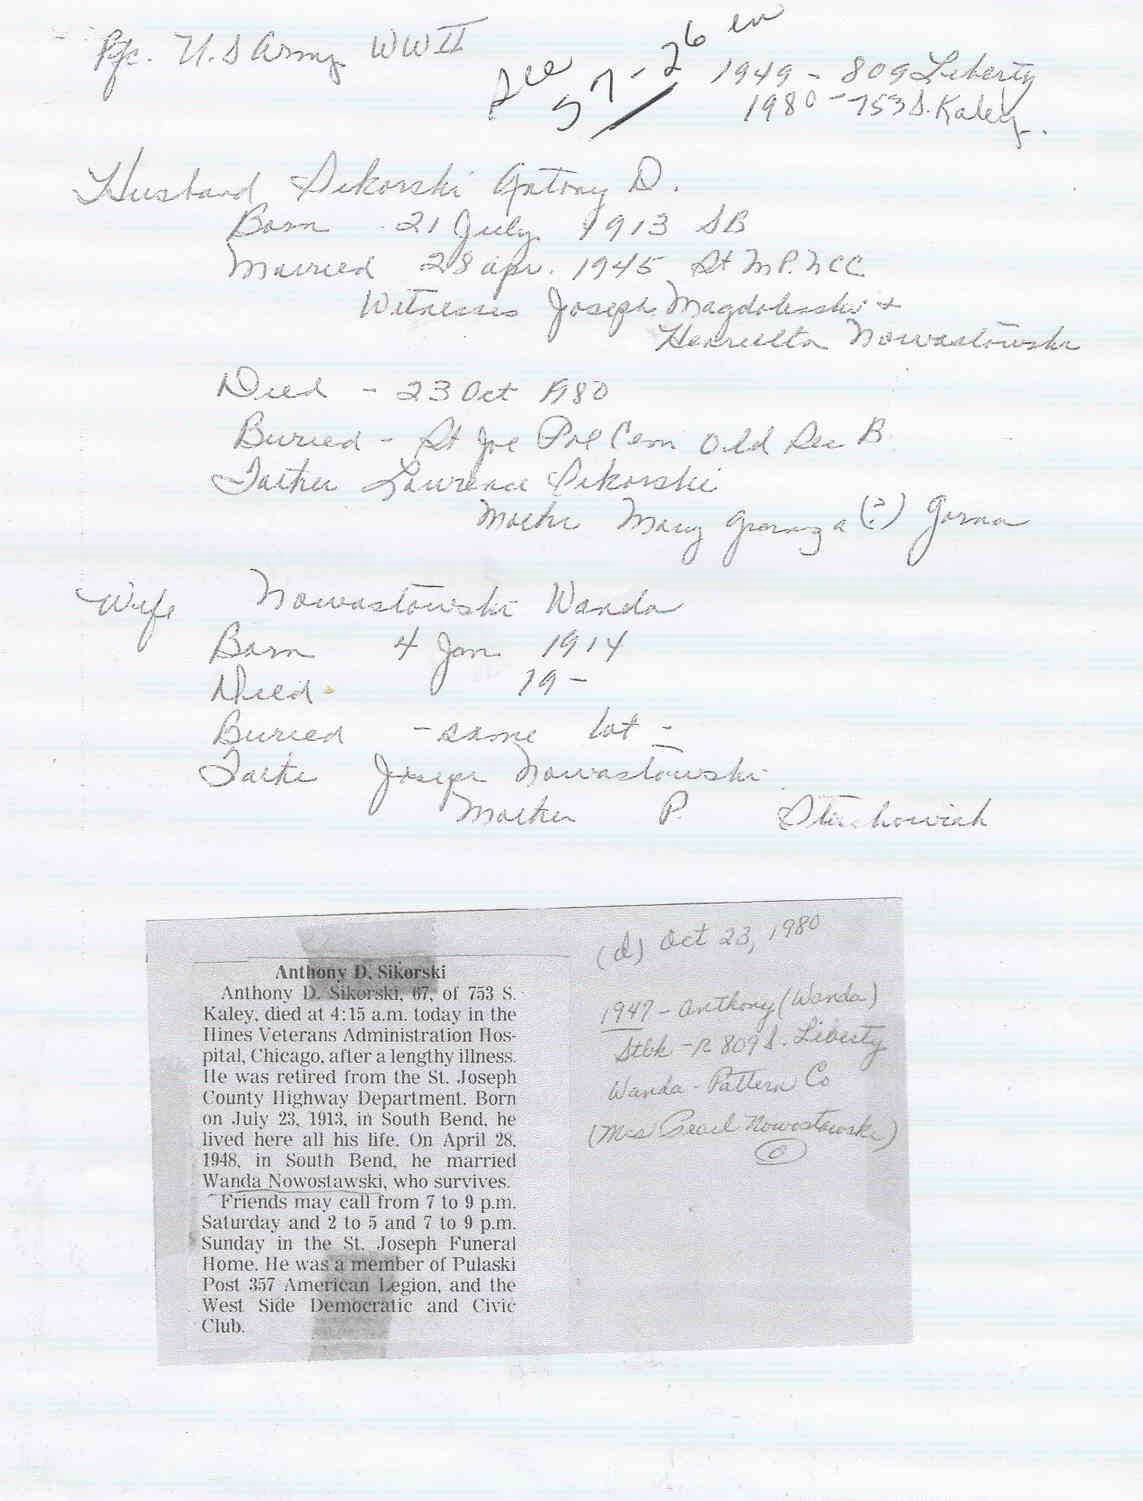 Pfc. U.S Army WWII
See 57-26
1949 - 809 Liberty
1980 - 753 S. Kaley.
Husband Sikorski Antony D.
Born - 21 July 1913 SB
Married 28 apr. 1945 St
Witnesses Joseph &
Henrietta Nowastowski
Died - 23 Oct 1980
Buried - St Joe Pol Cem Old Sec B
Father Laurence Sikorski
Mother Mary (?) Gorna
Wife Nowastowski Wanda
Born 4 Jan 1914
Died - 19 -
Buried - same lot -
Father Joseph Nowastowski
Mother P.
Anthony D. Sikorski
Anthony D. Sikorski, 67, of 753 S.
Kaley, died at 4:15 a.m. today in the
Hines Veterans Administration Hos-
pital, Chicago, after a lengthy illness.
He was retired from the St. Joseph
County Highway Department. Born
on July 23, 1913, in South Bend, he
lived here all his life. On April 28,
1948, in South Bend, he married
Wanda Nowostawski, who survives.
Friends may call from 7 to 9 p.m.
Saturday and 2 to 5 and 7 to 9 p.m.
Sunday in the St. Joseph Funeral
Home. He was a member of Pulaski
Post 357 American Legion, and the
West Side Democratic and Civic
Club.
(d) Oct 23, 1980
1947 - Anthony (Wanda)
Stbk - R 809 S. Liberty
Wanda - Pattern Co
(Mrs Pearl Nowostawski)